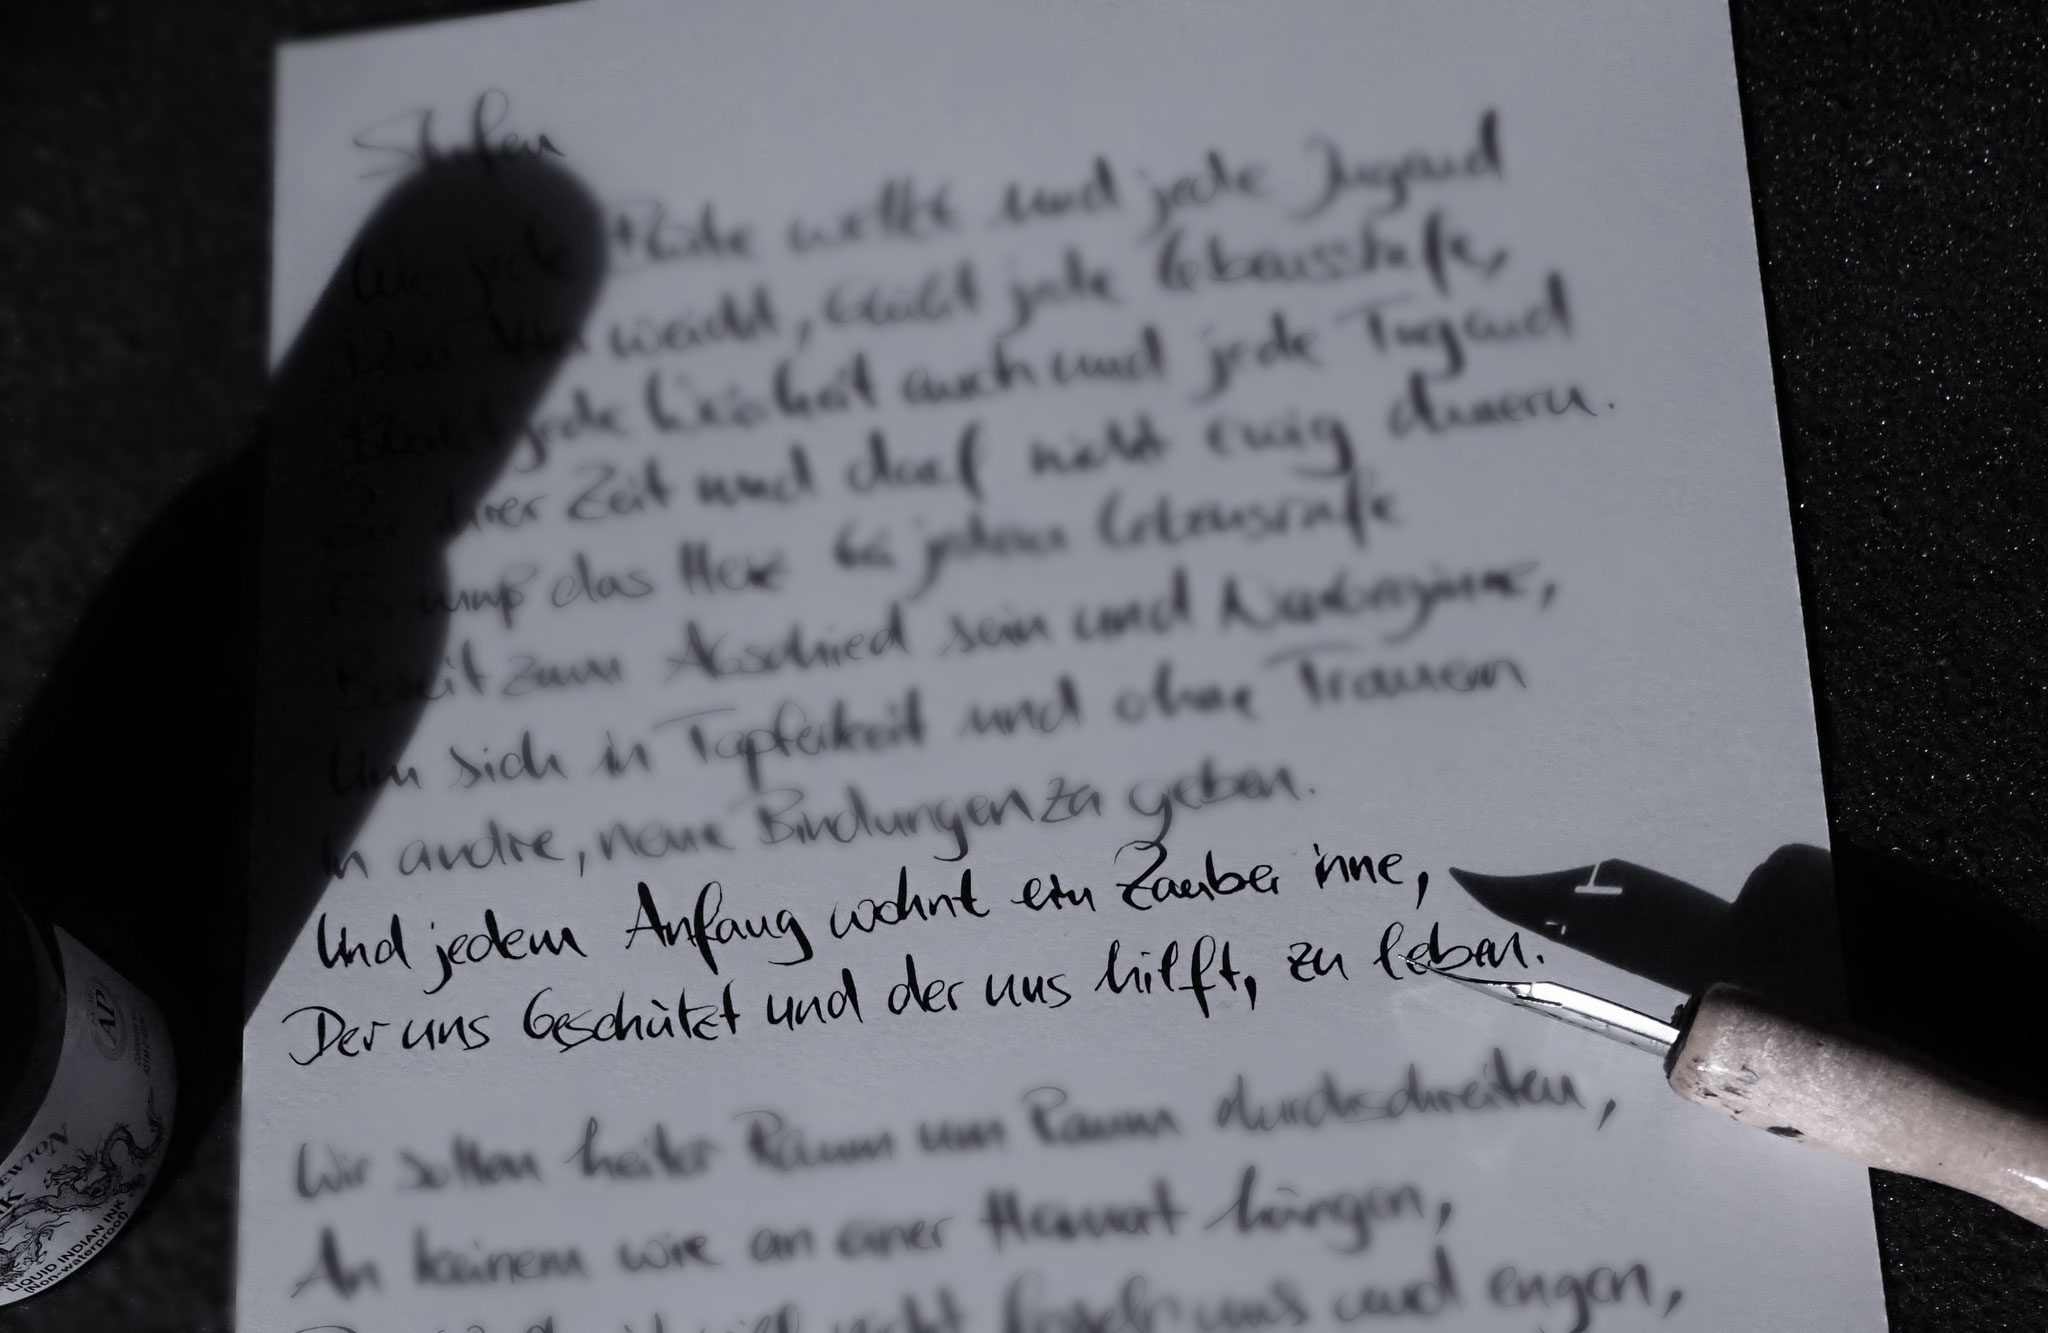 Stufen
Wie jede Blüte welkt und jede Jugend
Dem Alter weicht, blüht jede Lebensstufe,
Blüht jede Weisheit auch und jede Tugend
Zu ihrer Zeit und darf nicht ewig dauern.
Es muß das Herz bei jedem Lebensrufe
Bereit zum Abschied sein und Neubeginne,
Um sich in Tapferkeit und ohne Trauern
In andre, neue Bindungen zu geben.
Und jedem Anfang wohnt ein Zauber inne,
Der uns Geschützt und der uns hilft, zu leben.
Wir sollen heiter Raum um Raum durchschreiten,
An keinem wie an einer Heimat hängen,
nicht fesseln uns und engen,
EWTON
NK
LIQUID INDIAN INK
(Non-waterproof)